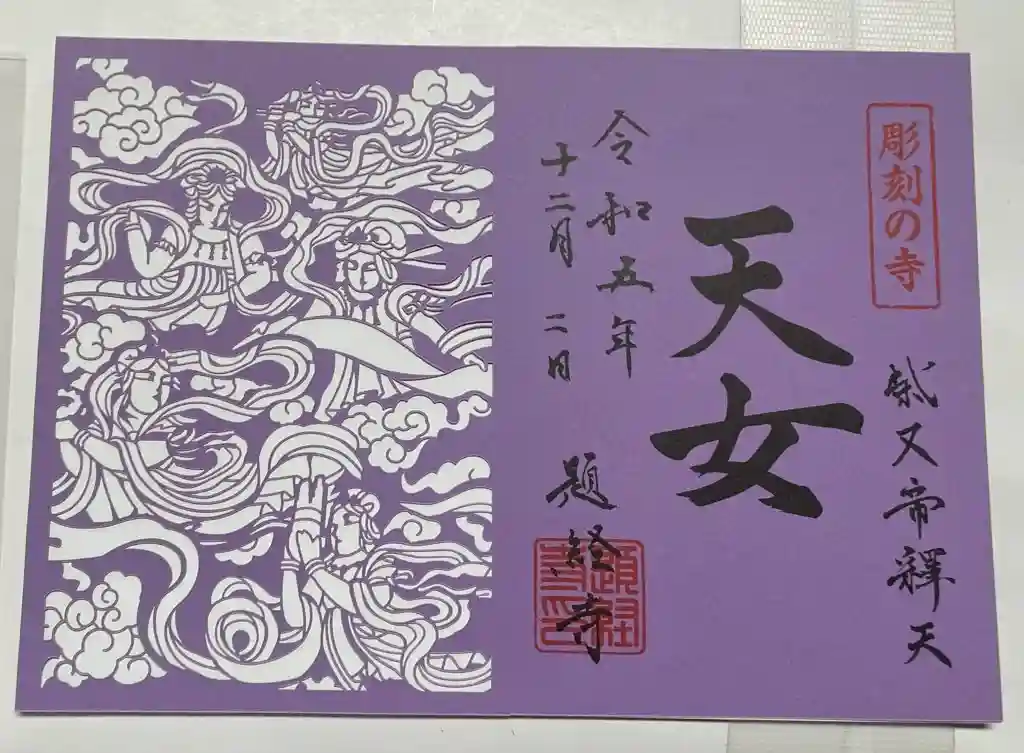 彫刻の寺
柴又帝釋天
天女
令和五年
十二月二日
題経寺